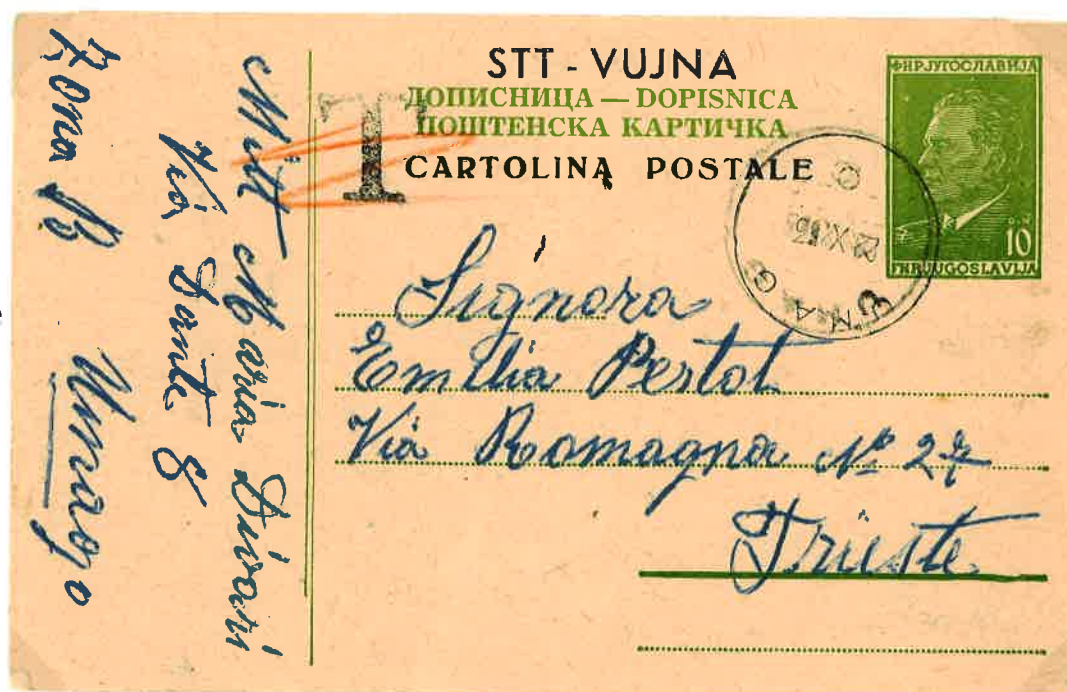 STT - VUJNA
ДОПИСНИЦА — DOPISNICA
ПОШТЕНСКА КАРТИЧКА
CARTOLINA POSTALE
T
ФНРЈУГОСЛАВИЈА
10
FNRJUGOSLAVIJA
UMAG
Signora
Emilia Pertot
Via Romagna No 27
Trieste
Mitt Maria
Via Dante 8
Zona B Umago